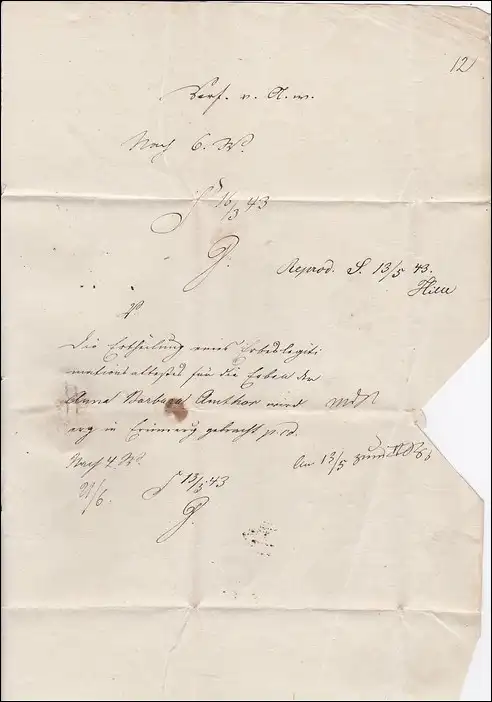 12
Verf. v. A. w.
Nach 6. W.
16/3 43
Reprod. S. 13/5 43.
Die Ertheilung eines Erbeslegiti
mationsattestes für die Erben der
Anna Barbara Amthor wird
in Erinnerung gebracht p. cd.
Nach 4 W.
An 13/5 zum
13/5 43